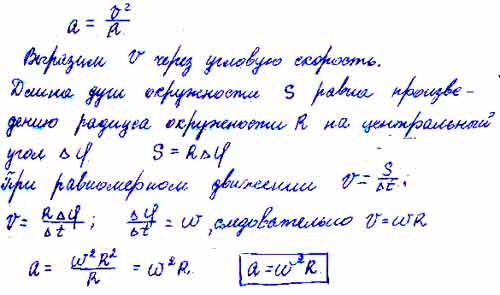 a = v²/R
Выразим v через угловую скорость.
Длина дуги окружности S равна произве-
дению радиуса окружности R на центральный
угол Δφ S = RΔφ
При равномерном движении v = S/Δt;
v = RΔφ/Δt; Δφ/Δt = ω, следовательно v = ωR
a = ω²R²/R = ω²R. a = ω²R.